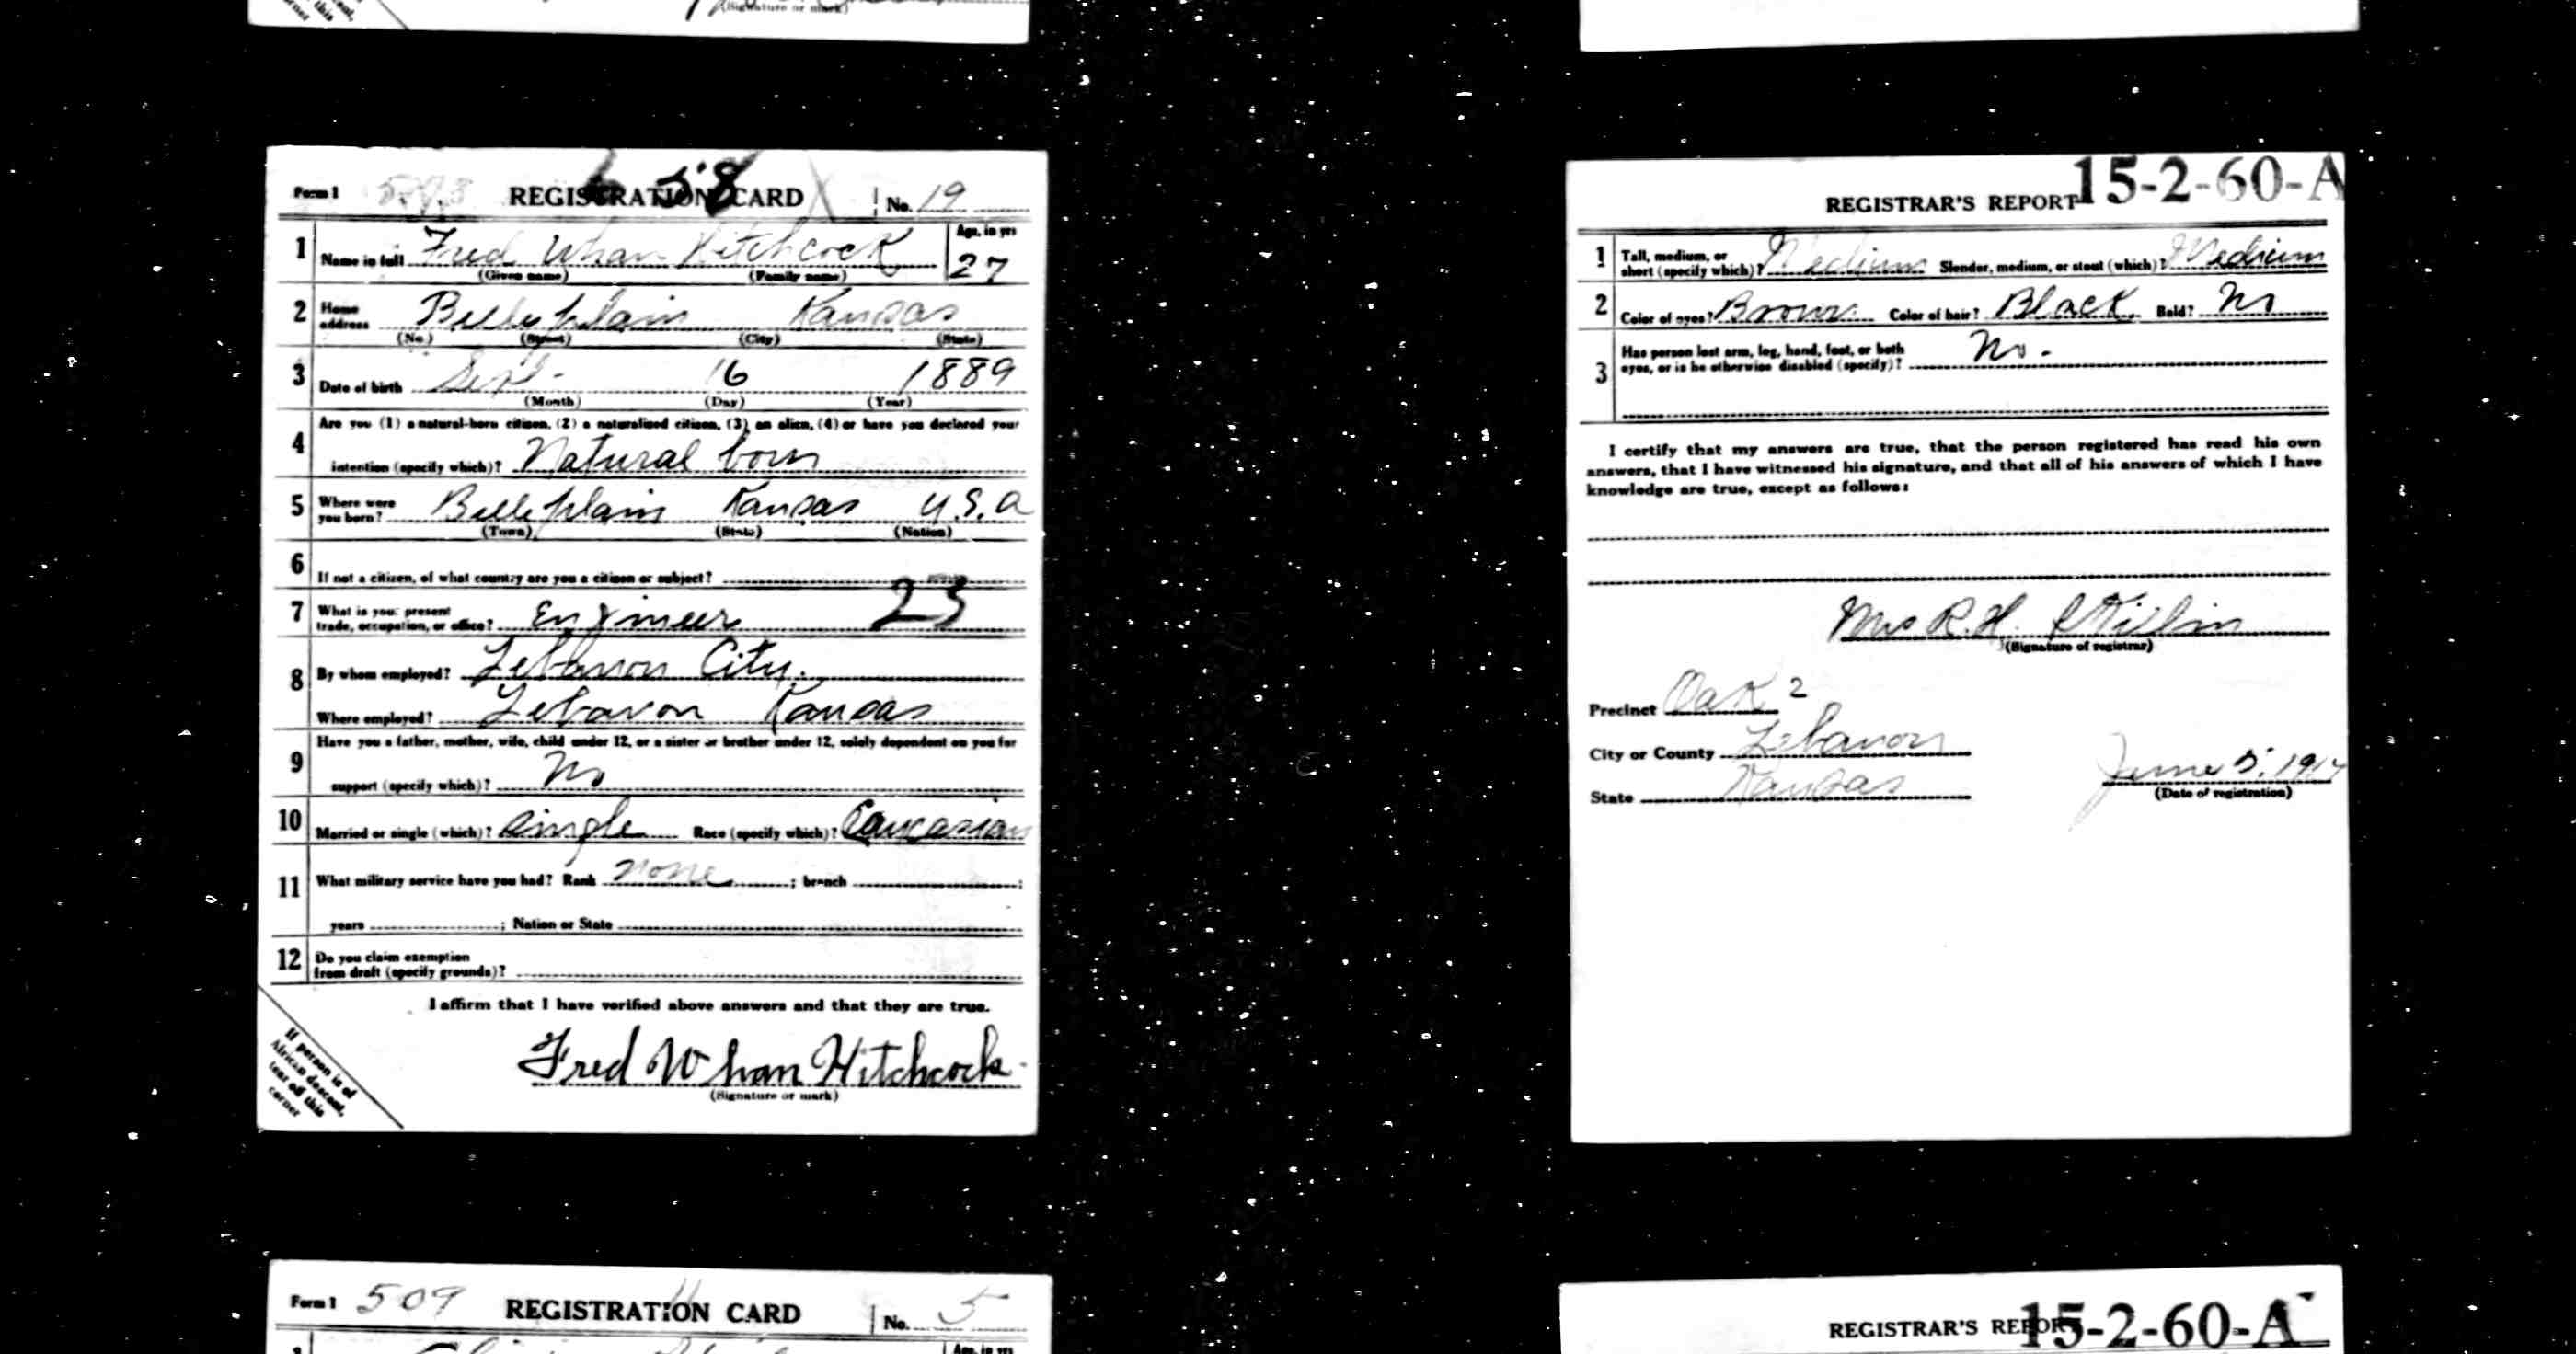 this
corner
(Signature or mark)
Form 1 REGISTRATION CARD No. 19
58
1 Name in full Fred Whan Hitchcock Age, in yrs 27
(Given name) (Family name)
2 Home address Belleplain Kansas
(No.) (Street) (City) (State)
3 Date of birth Sept. 16 1889
(Month) (Day) (Year)
4 Are you (1) a natural-born citizen, (2) a naturalized citizen, (3) an alien, (4) or have you declared your
intention (specify which)? Natural born
5 Where were you born? Belleplain Kansas U.S.A
(Town) (State) (Nation)
6 If not a citizen, of what country are you a citizen or subject?
7 What is your present trade, occupation, or office? Engineer 23
8 By whom employed? Lebanon City.
Where employed? Lebanon Kansas
9 Have you a father, mother, wife, child under 12, or a sister or brother under 12, solely dependent on you for
support (specify which)? No
10 Married or single (which)? Single Race (specify which)? Caucasian
11 What military service have you had? Rank None ; branch ;
years ; Nation or State
12 Do you claim exemption
from draft (specify grounds)?
I affirm that I have verified above answers and that they are true.
Fred Whan Hitchcock
(Signature or mark)
If person is of
African descent,
tear off this
corner
REGISTRAR'S REPORT 15-2-60-A
1 Tall, medium, or
short (specify which)? Medium Slender, medium, or stout (which)? Medium
2 Color of eyes? Brown Color of hair? Black Bald? No
3 Has person lost arm, leg, hand, foot, or both
eyes, or is he otherwise disabled (specify)? No.
I certify that my answers are true, that the person registered has read his own
answers, that I have witnessed his signature, and that all of his answers of which I have
knowledge are true, except as follows:
Mrs R.H.
(Signature of registrar)
Precinct Oak 2
City or County Lebanon
State Kansas
June 5, 1917
(Date of registration)
Form 1 509 REGISTRATION CARD No. 5
1 Age, in yrs
REGISTRAR'S REPORT 15-2-60-A